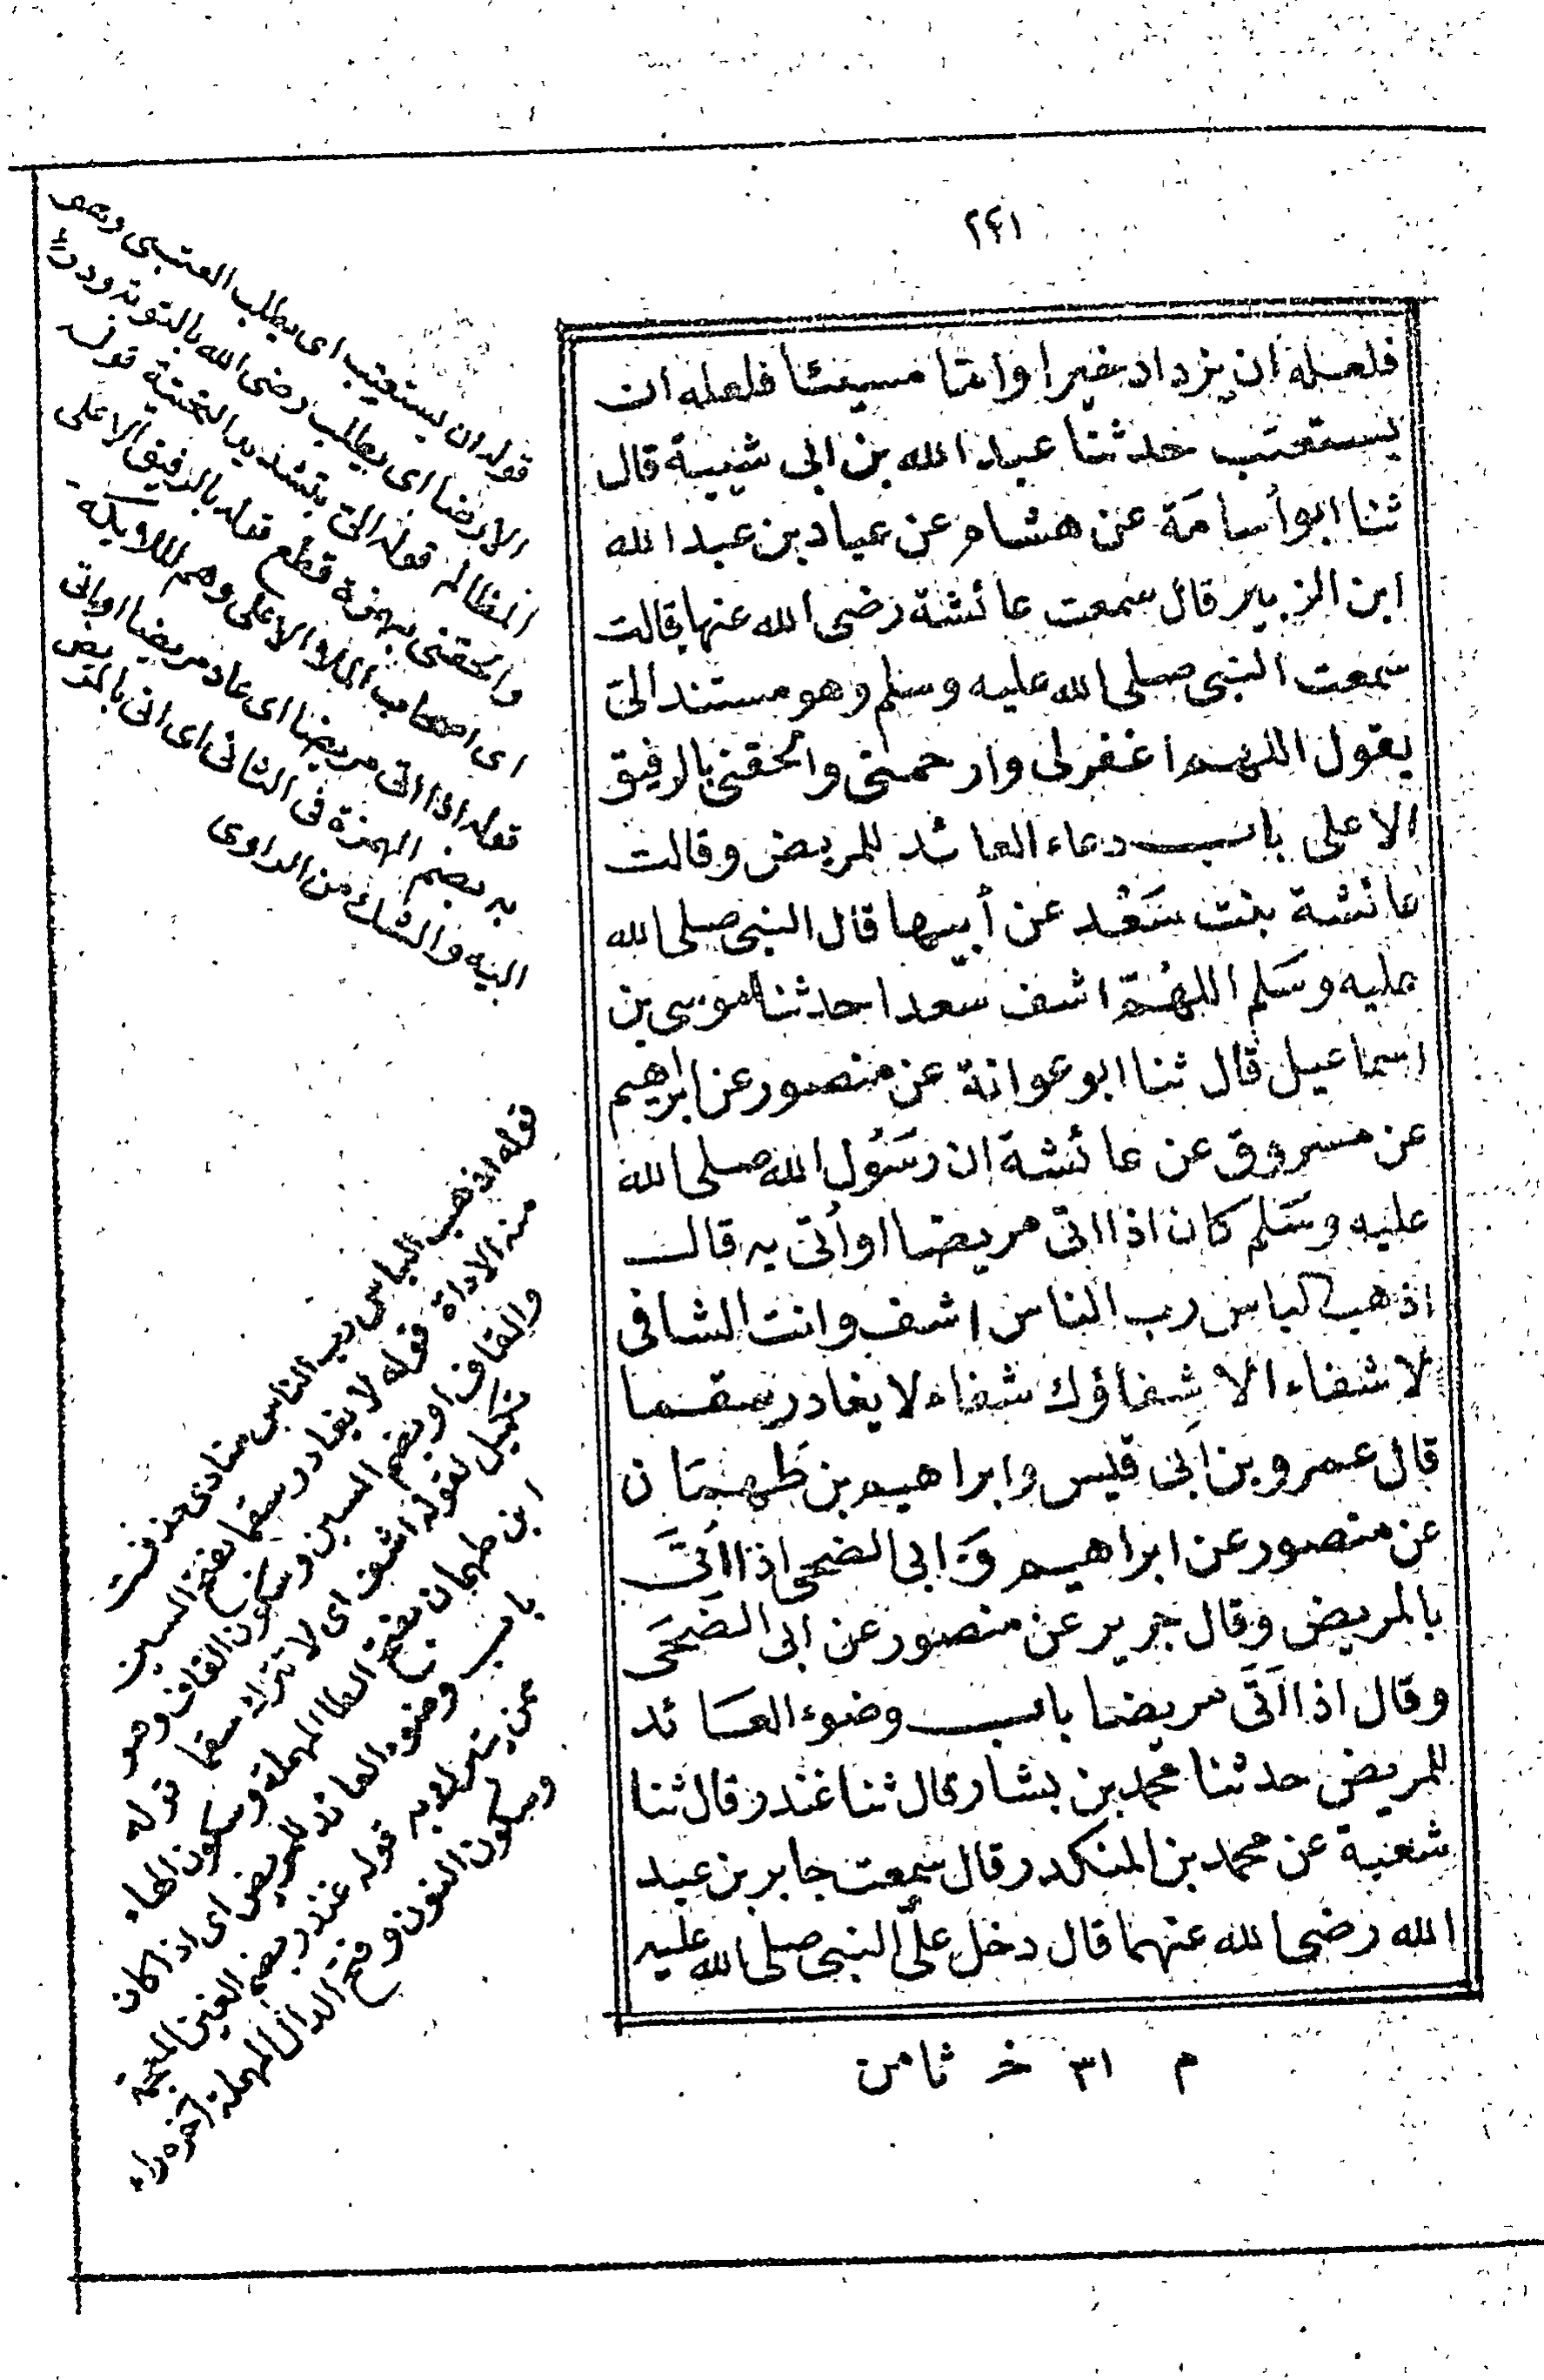 ٢٤١
فلعله ان يزداد خيرا واما مسيئا فلعله ان
يستعتب حدثنا عبد الله بن ابى شيبة قال
ثنا ابو أسامة عن هشام عن عباد بن عبد الله
ابن الزبير قال سمعت عائشة رضى الله عنها قالت
سمعت النبى صلى الله عليه وسلم وهو مستند الىّ
يقول اللهم اغفر لى وارحمنى والحقنى بالرفيق
الاعلى باب دعاء العائد للمريض وقالت
عائشة بنت سَعْد عن أبيها قال النبى صلى الله
عليه وسَلم اللهُمّ اشف سعدا حدثنا موسى بن
اسماعيل قال ثنا ابو عوانة عن منصور عن ابراهيم
عن مسروق عن عائشة ان رسَول الله صلى الله
عليه وسَلم كان اذا اتى مريضا او أتى به قال
اذهب الباس رب الناس اشف وانت الشافى
لا شفاء الا شِفاؤك شفاء لا يغادر سقما
قال عمرو بن ابى قيس وابراهيم بن طَهمان
عن منصور عن ابراهيم وَابى الضحى اذا اُتىَ
بالمريض وقال جرير عن منصور عن ابى الضَحَى
وقال اذا اَتَى مريضا باب وضوء العائد
للمريض حدثنا محمد بن بشار قال ثنا غندر قال ثنا
شعبة عن محمد بن المنكدر قال سمعت جابر بن عبد
الله رضى الله عنهما قال دخل علىّ النبى صلى الله عليه
م ٣١ خ ثامن
قوله ان يستعتب اى يطلب العتبى وهو
الارضا اى يطلب رضى الله بالتوبة ورد
المظالم قوله الىّ بتشديد التحتية قوله
والحقنى بهمزة قطع قوله بالرفيق الاعلى
اى اصحاب الملاء الاعلى وهم الملايكة
قوله اذا اتى مريضا اى عاد مريضا او اتى
به بضم الهمزة فى الثانى اى اتى بالمريض
اليه والشك من الراوى
قوله اذهب الباس رب الناس منادى حذفت
منه الاداة قوله لا يغادر سقما بفتح السين
والقاف او بضم السين وسكون القاف وهو
تكميل لقوله اشف اى لا تترك سقما قوله
ابن طهمان بفتح الطا المهملة وسكون الهاء
باب وضوء العائد للمريض اى اذا كان
ممن يتبرك به قوله غندر بضم الغين المعجمة
وسكون النون وفتح الدال المهملة آخره راء